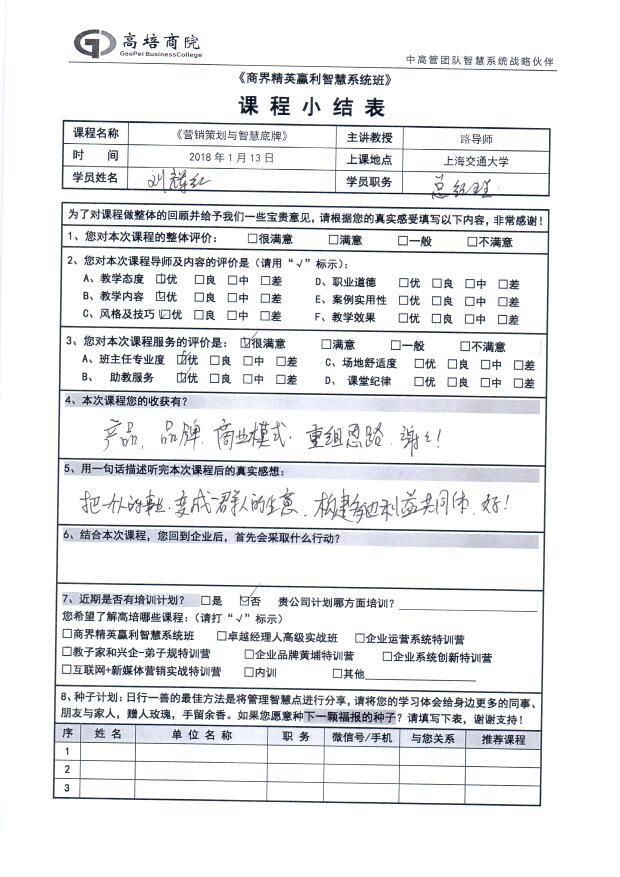 高培商院
GaoPei BusinessCollege
中高管团队智慧系统战略伙伴
《商界精英赢利智慧系统班》
课程小结表
课程名称 《营销策划与智慧底牌》 主讲教授 路导师
时 间 2018年1月13日 上课地点 上海交通大学
学员姓名 刘辉红 学员职务 总经理
为了对课程做整体的回顾并给予我们一些宝贵意见,请根据您的真实感受填写以下内容,非常感谢!
1、您对本次课程的整体评价: □很满意 □满意 □一般 □不满意
2、您对本次课程导师及内容的评价是(请用“√”标示):
A、教学态度 ☑优 □良 □中 □差 D、职业道德 □优 □良 □中 □差
B、教学内容 ☑优 □良 □中 □差 E、案例实用性 □优 □良 □中 □差
C、风格及技巧 ☑优 □良 □中 □差 F、教学效果 □优 □良 □中 □差
3、您对本次课程服务的评价是: ☑很满意 □满意 □一般 □不满意
A、班主任专业度 ☑优 □良 □中 □差 C、场地舒适度 □优 □良 □中 □差
B、 助教服务 ☑优 □良 □中 □差 D、 课堂纪律 □优 □良 □中 □差
4、本次课程您的收获有?
产品、品牌、商业模式、重组思路、谢谢!
5、用一句话描述听完本次课程后的真实感想:
把一个人的事业、变成一群人的生意、构建多边利益共同体、好!
6、结合本次课程,您回到企业后,首先会采取什么行动?
7、近期是否有培训计划? □是 ☑否 贵公司计划哪方面培训?
您希望了解高培哪些课程:(请打“√”标示)
□商界精英赢利智慧系统班 □卓越经理人高级实战班 □企业运营系统特训营
□教子家和兴企-弟子规特训营 □企业品牌黄埔特训营 □企业系统创新特训营
□互联网+新媒体营销实战特训营 □内训 □其他
8、种子计划:日行一善的最佳方法是将管理智慧点进行分享,请将您的学习体会给身边更多的同事、
朋友与家人,赠人玫瑰,手留余香。如果您愿意种下一颗福报的种子?请填写下表,谢谢支持!
序 姓 名 单 位 名 称 职 务 微信号/手机 与您关系 推荐课程
1
2
3